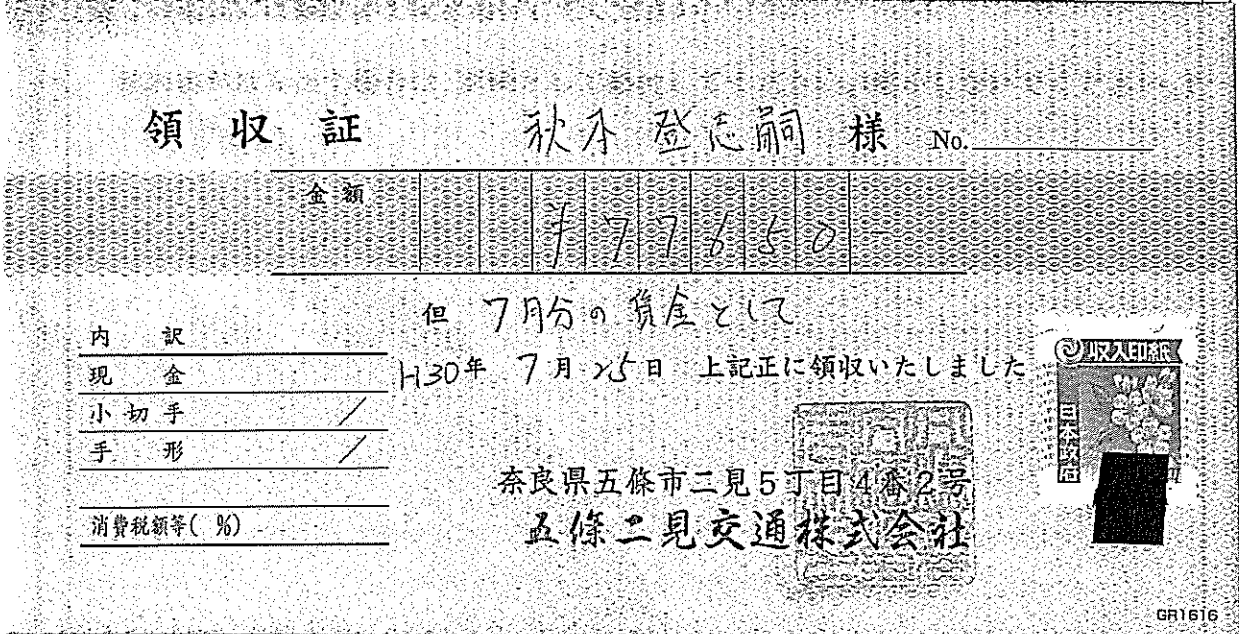 領収証 秋本 登志嗣 様 No.
金額 ¥77650
但 7月分の賃金として
H30年 7月25日 上記正に領収いたしました
内訳
現金
小切手 /
手形 /
消費税額等( %)
収入印紙
日本政府
奈良県五條市二見5丁目4番2号
五條二見交通株式会社
GR1616